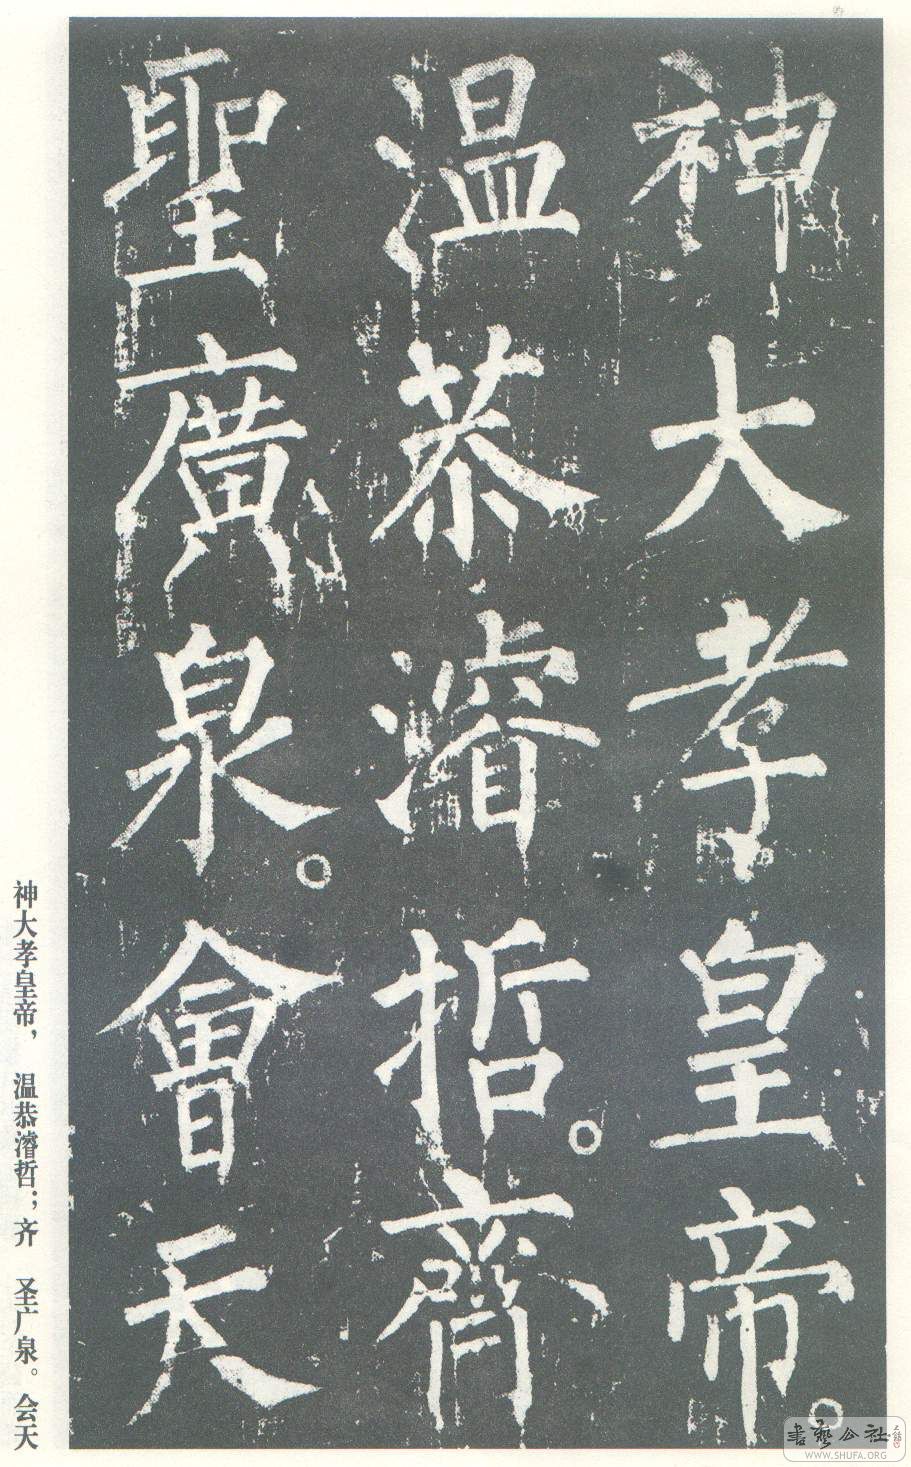 神大孝皇帝。
温恭濬哲。齊
聖廣泉。會天
神大孝皇帝，温恭濬哲；齐圣广泉。会天
書藝公社
WWW.SHUFA.ORG